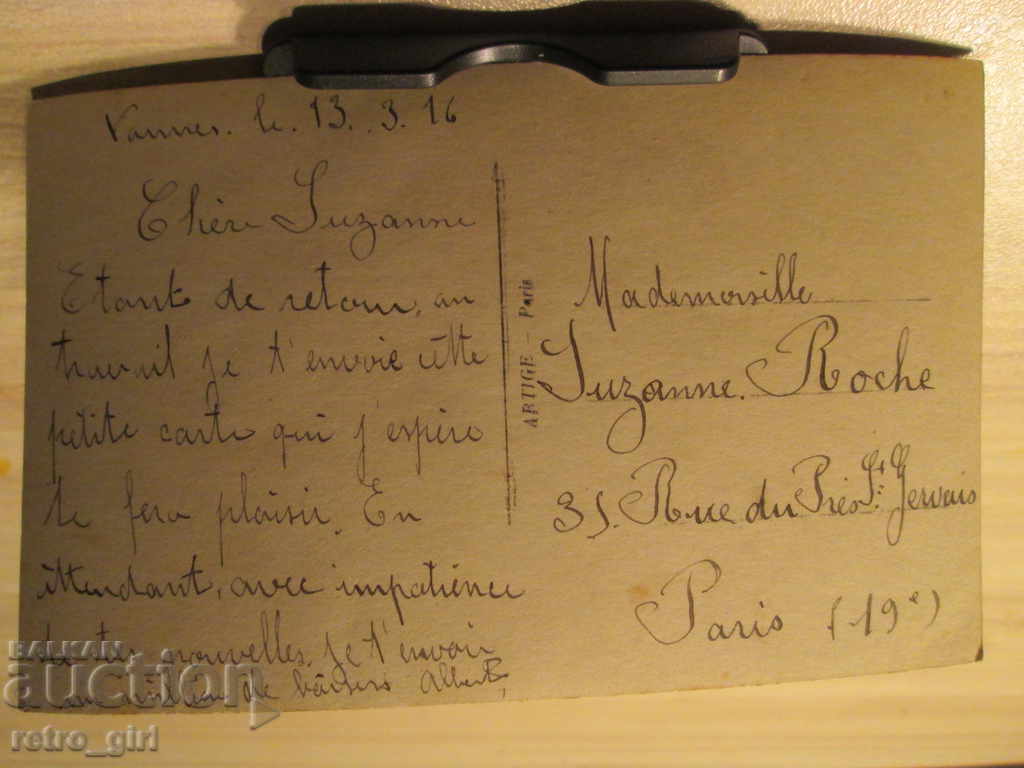 Vannes. le. 13. 3. 16
Chère Suzanne
Etant de retour, au
travail je t'envoie cette
petite carte qui j'espère
te fera plaisir. En
attendant, avec impatience
de tes nouvelles, je t'envoie
de baisers Albert
ARTIGE - Paris
Mademoiselle
Suzanne. Roche
31. Rue du Prés St. Gervais
Paris (19e)
BALKAN
auction
retro_girl